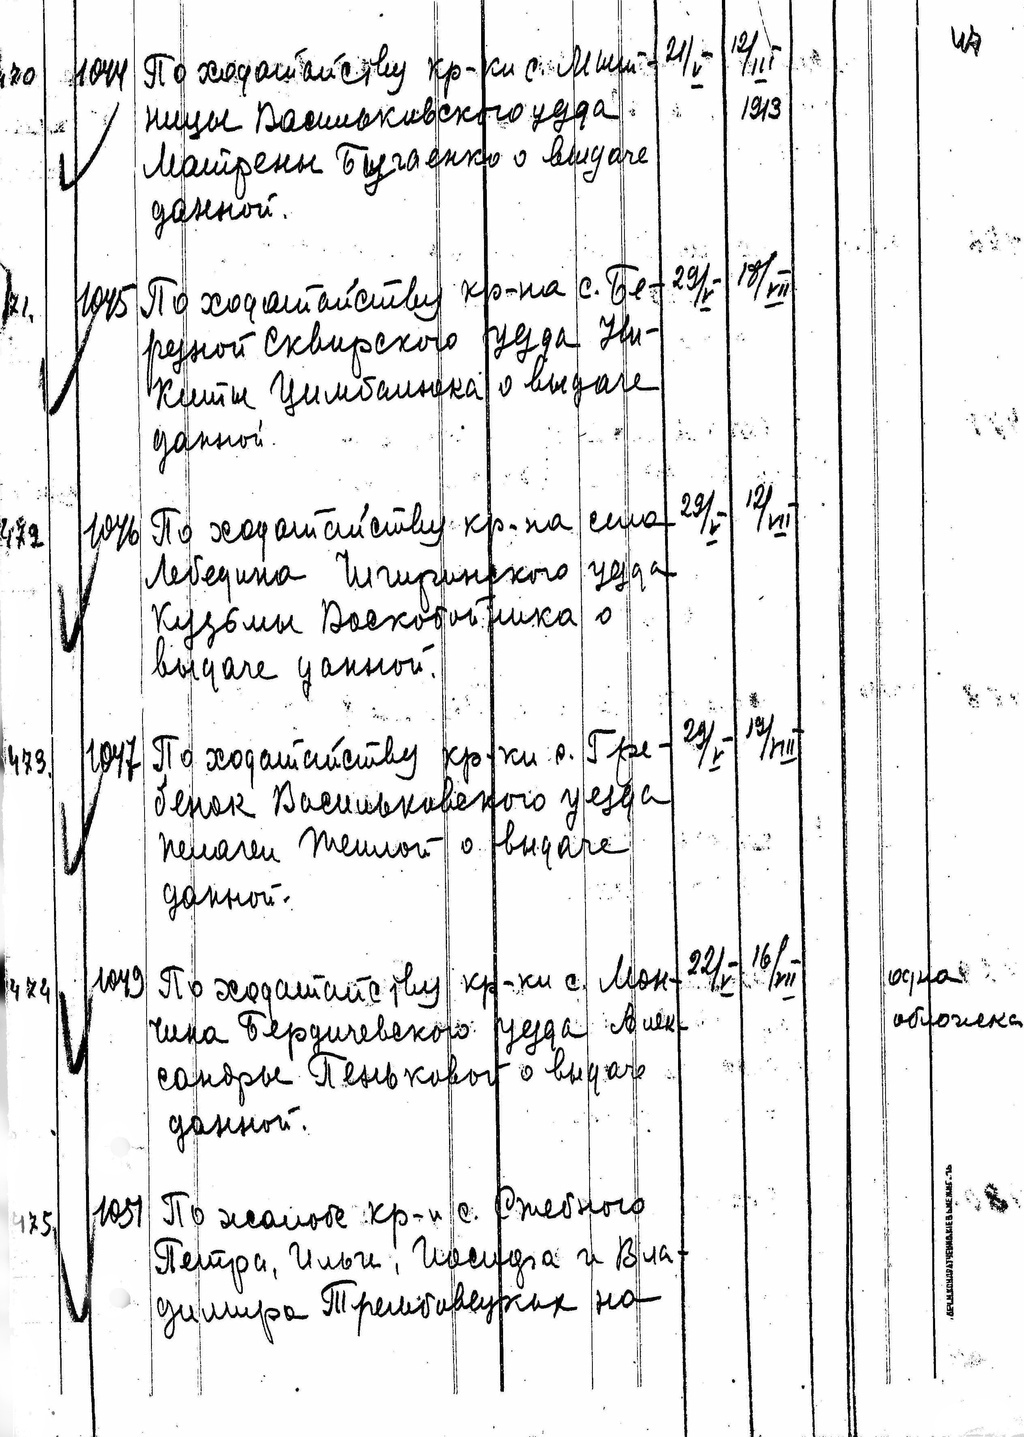 47
470 1044 По ходатайству кр-ки с. Мыт- 21/V 12/III
ницы Васильковского уезда 1913
Матрены Бугаенко о выдаче
данной.
71. 1045 По ходатайству кр-на с. Бе- 29/V 18/VII
резной Сквирского уезда Ни-
киты Цимбалюка о выдаче
данной.
472 1046 По ходатайству кр-на села 29/V 12/VII
Лебедина Чигиринского уезда
Кузьмы Воскобойника о
выдаче данной.
473. 1047 По ходатайству кр-ки с. Гре- 29/V 19/VIII
бенок Васильковского уезда
Пелагеи Теплой о выдаче
данной.
474 1049 По ходатайству кр-ки с. Мон- 22/V 16/VII одна
чина Бердичевского уезда Алек- обложка
сандры Пеньковой о выдаче
данной.
475. 1051 По жалобе кр-н с.
Петра, Ильи, Иосифа и Вла-
димира Трембовецких на